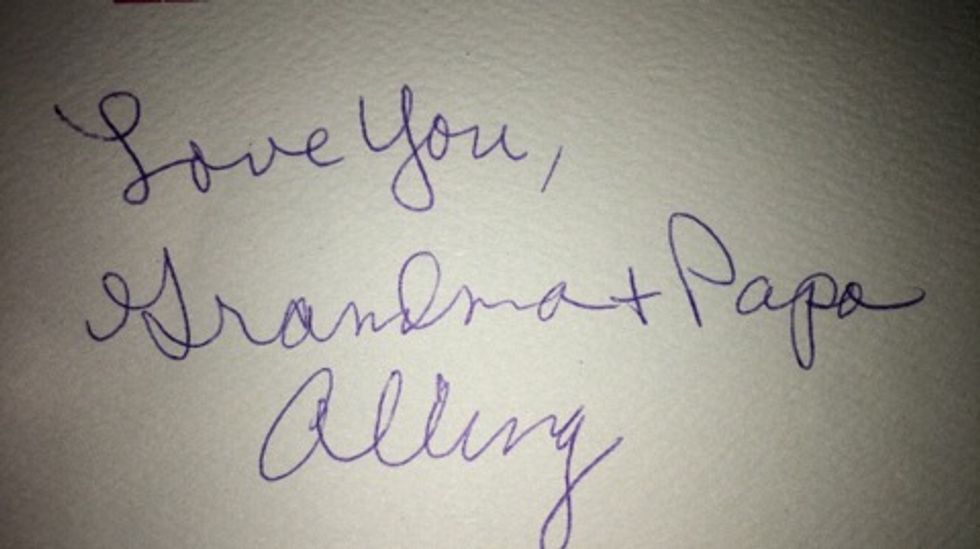 Love You,
Grandma + Papa
Alling